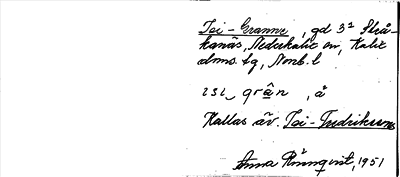 Isi-Granns, gd 3² Strå-
kanäs, Nederkalix sn, Kalix
dms. tg, Nonb. l
ısı‿ grân , å
Kallas äv. Isi-Fredriksons
Anna Rönnqvist, 1951